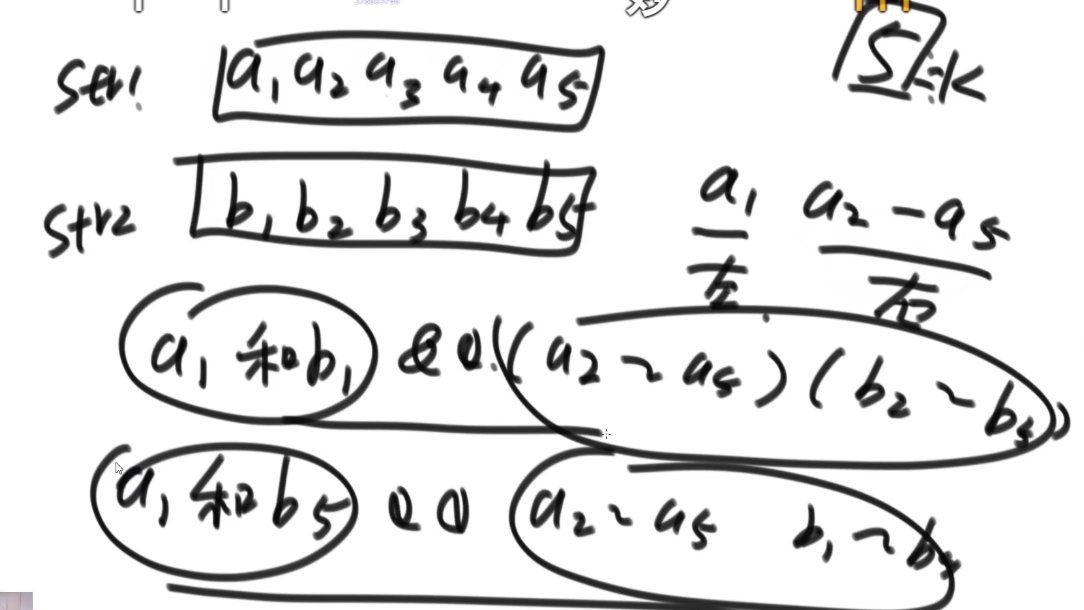 str1 a1 a2 a3 a4 a5
S=k
str2 b1 b2 b3 b4 b5
a1 a2-a5
左 右
a1和b1 && (a2~a5)(b2~b5)
a1和b5 && a2~a5 b1~b4